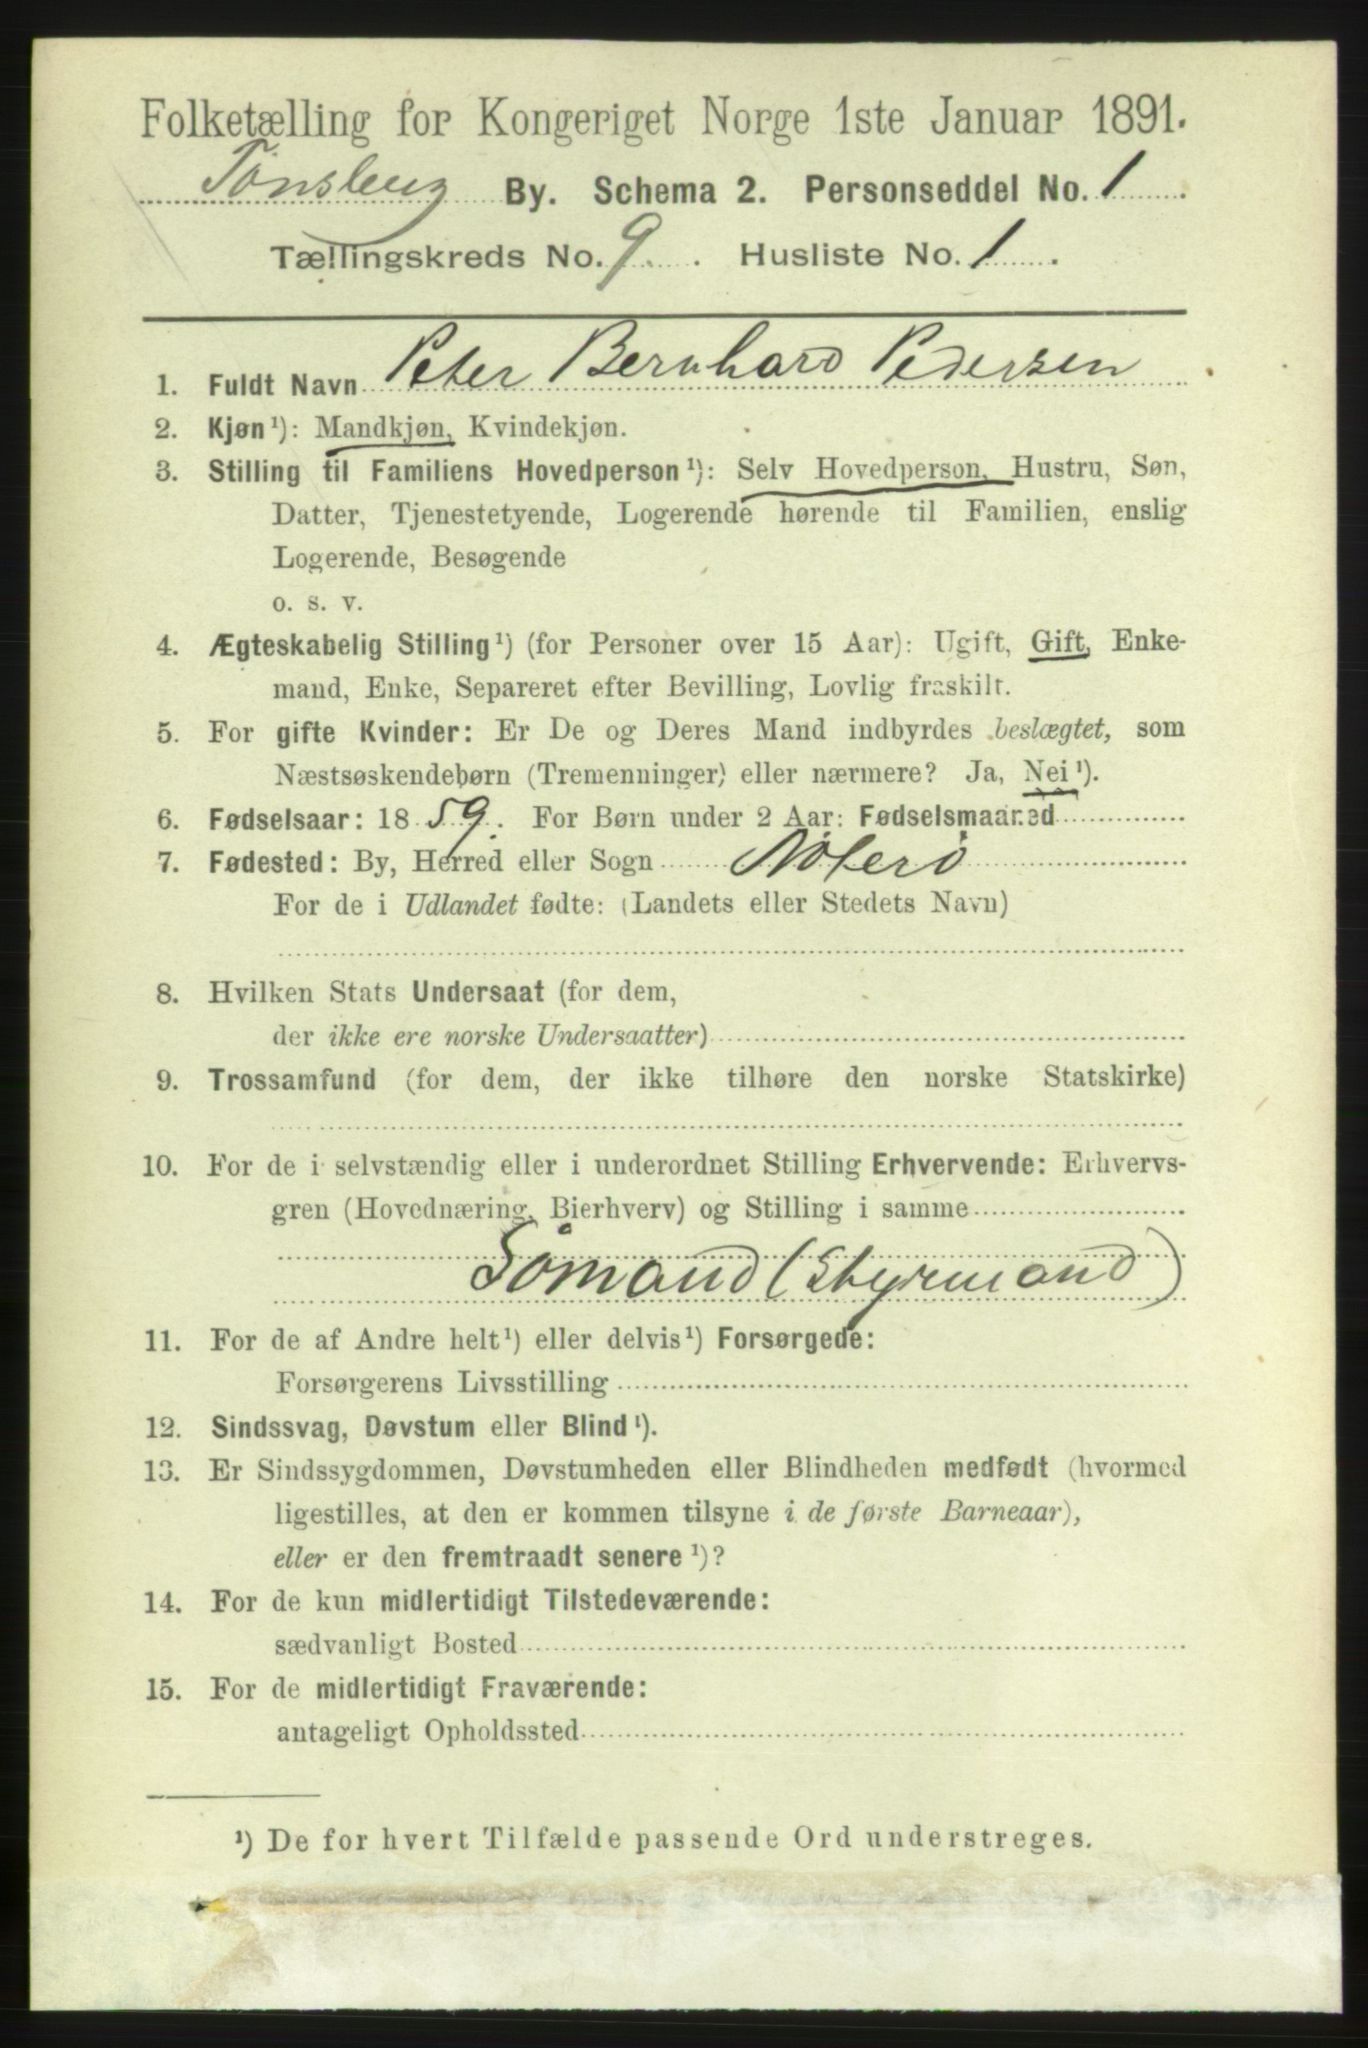 Folketælling for Kongeriget Norge 1ste Januar 1891.
Tønsberg By. Schema 2. Personseddel No. 1
Tællingskreds No. 9. Husliste No. 1.
1. Fuldt Navn Peter Bernhard Pedersen
2. Kjøn¹): Mandkjøn, Kvindekjøn.
3. Stilling til Familiens Hovedperson¹): Selv Hovedperson, Hustru, Søn,
Datter, Tjenestetyende, Logerende hørende til Familien, enslig
Logerende, Besøgende
o. s. v.
4. Ægteskabelig Stilling¹) (for Personer over 15 Aar): Ugift, Gift, Enke-
mand, Enke, Separeret efter Bevilling, Lovlig fraskilt.
5. For gifte Kvinder: Er De og Deres Mand indbyrdes beslægtet, som
Næstsøskendebørn (Tremenninger) eller nærmere? Ja, Nei¹).
6. Fødselsaar: 1859. For Børn under 2 Aar: Fødselsmaaned
7. Fødested: By, Herred eller Sogn Nøterø
For de i Udlandet fødte: (Landets eller Stedets Navn)
8. Hvilken Stats Undersaat (for dem,
der ikke ere norske Undersaatter)
9. Trossamfund (for dem, der ikke tilhøre den norske Statskirke)
10. For de i selvstændig eller i underordnet Stilling Erhvervende: Erhvervs-
gren (Hovednæring, Bierhverv) og Stilling i samme
Sømand (Styrmand)
11. For de af Andre helt¹) eller delvis¹) Forsørgede:
Forsørgerens Livsstilling
12. Sindssvag, Døvstum eller Blind¹).
13. Er Sindssygdommen, Døvstumheden eller Blindheden medfødt (hvormed
ligestilles, at den er kommen tilsyne i de første Barneaar),
eller er den fremtraadt senere¹)?
14. For de kun midlertidigt Tilstedeværende:
sædvanligt Bosted
15. For de midlertidigt Fraværende:
antageligt Opholdssted
¹) De for hvert Tilfælde passende Ord understreges.